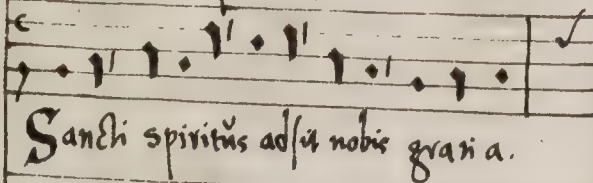 Sancti spiritus adsit nobis gratia.